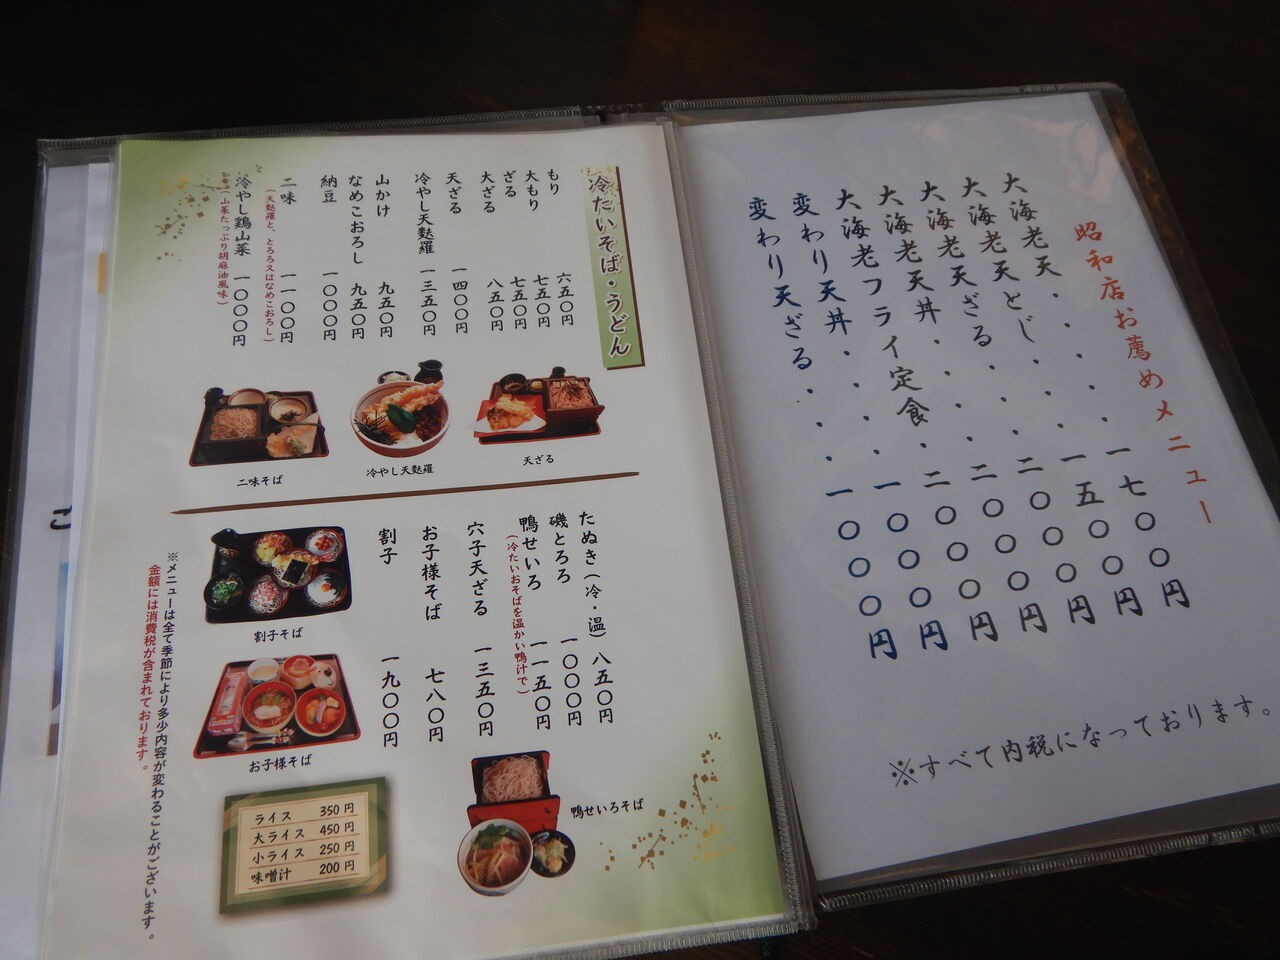 昭和店お薦めメニュー
大海老天・・・・一七〇〇円
大海老天とじ・・・一五〇〇円
大海老天ざる・・・二〇〇〇円
大海老天丼・・・二〇〇〇円
大海老フライ定食・二〇〇〇円
変わり天丼・・・・一〇〇〇円
変わり天ざる・・・一〇〇〇円
※すべて内税になっております。
冷たいそば・うどん
もり 六五〇円
大もり 七五〇円
ざる 七五〇円
大ざる 八五〇円
天ざる 一四〇〇円
冷やし天麩羅 一三五〇円
山かけ 九五〇円
なめこおろし 九五〇円
納豆 一〇〇〇円
二味 一一〇〇円
(天麩羅と、とろろ又はなめこおろし)
冷やし鶏山菜 一〇〇〇円
(山菜たっぷり胡麻油風味)
天ざる
冷やし天麩羅
二味そば
たぬき(冷・温) 八五〇円
磯とろろ 一〇〇〇円
鴨せいろ 一一五〇円
(冷たいおそばを温かい鴨汁で)
穴子天ざる 一三五〇円
お子様そば 七八〇円
割子 一九〇〇円
割子そば
お子様そば
鴨せいろそば
ライス 350円
大ライス 450円
小ライス 250円
味噌汁 200円
※メニューは全て季節により多少内容が変わることがございます。
金額には消費税が含まれております。